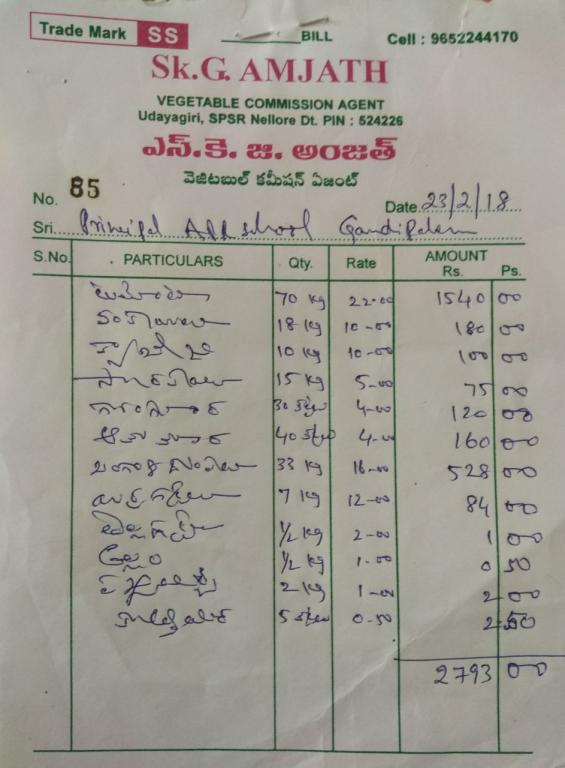 Trade Mark SS
BILL
Cell : 9652244170
Sk.G. AMJATH
VEGETABLE COMMISSION AGENT
Udayagiri, SPSR Nellore Dt. PIN : 524226
ఎస్.కె. జి. అంజత్
వెజిటబుల్ కమీషన్ ఏజంట్
No. 85
Date 23/2/18
Sri. Principal school Gandipalem
S.No. PARTICULARS Qty. Rate AMOUNT Rs. Ps.
70 Kg 22-00 1540 00
వంకాయలు 18 Kg 10-00 180 00
10 Kg 10-00 100 00
15 Kg 5-00 75 00
గోంగూర 30 కట్టలు 4-00 120 00
ఆకు కూర 40 కట్టలు 4-00 160 00
33 Kg 16-00 528 00
ఎర్రగడ్డలు 7 Kg 12-00 84 00
1/2 Kg 2-00 1 00
అల్లం 1/2 Kg 1-00 0 50
2 Kg 1-00 2 00
5 కట్టలు 0-50 2 50
2793 00